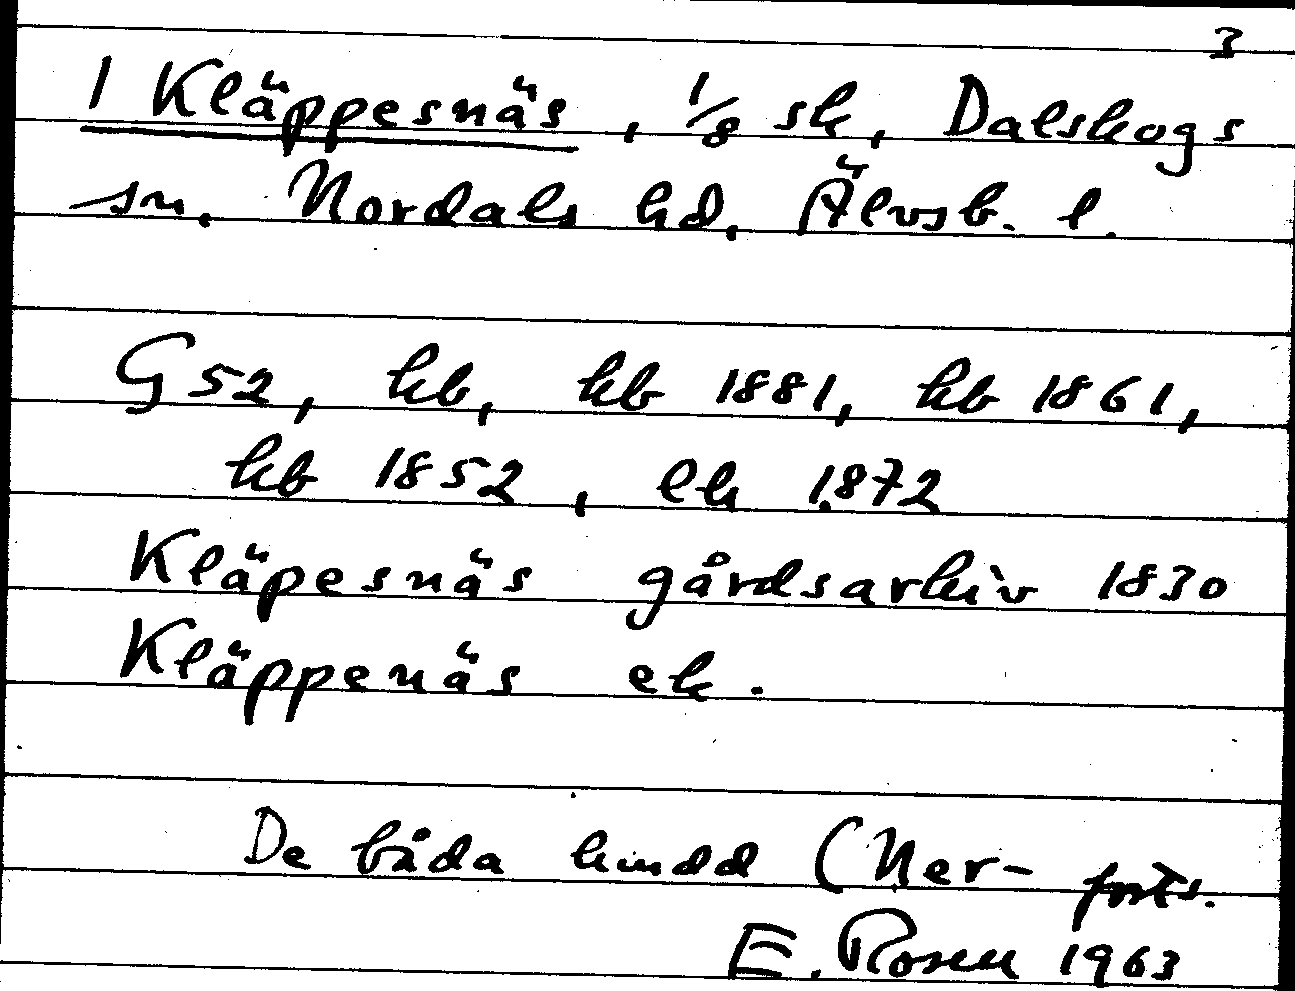 3
1 Kläppesnäs, 1/8 sk, Dalskogs
sn. Nordals hd, Älvsb. l.
G 52, kb, kb 1881, kb 1861,
kb 1852, ek 1872
Kläpesnäs gårdsarkiv 1830
Kläppenäs ek.
De båda hmdd (Ner- forts.
E. Rosen 1963